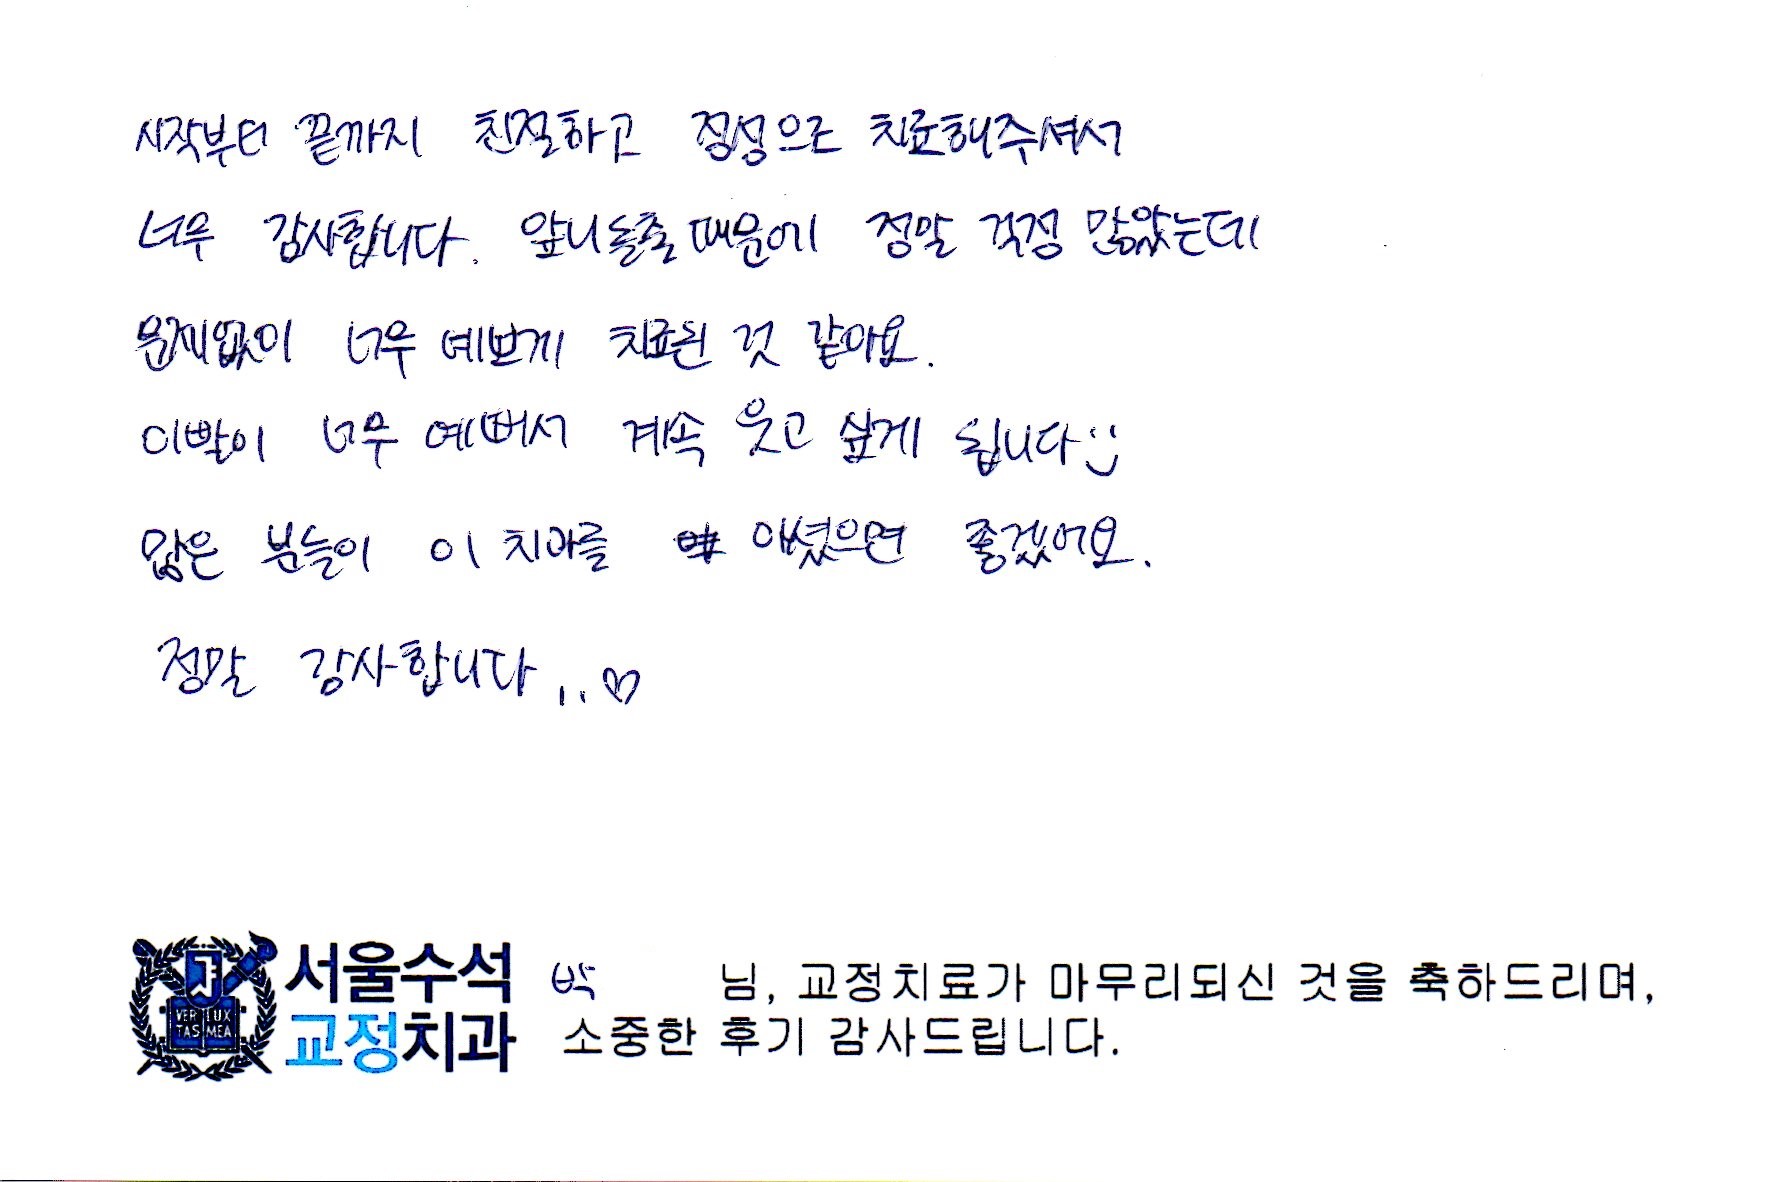 시작부터 끝까지 친절하고 정성으로 치료해주셔서
너무 감사합니다. 앞니돌출때문에 정말 걱정 많았는데
문제없이 너무 예쁘게 치료된 것 같아요.
이빨이 너무 예뻐서 계속 웃고 싶게 됩니다:)
많은 분들이 이 치과를 아셨으면 좋겠어요.
정말 감사합니다...♡
서울수석
교정치과
VERI LUX
TAS MEA
박 님, 교정치료가 마무리되신 것을 축하드리며,
소중한 후기 감사드립니다.